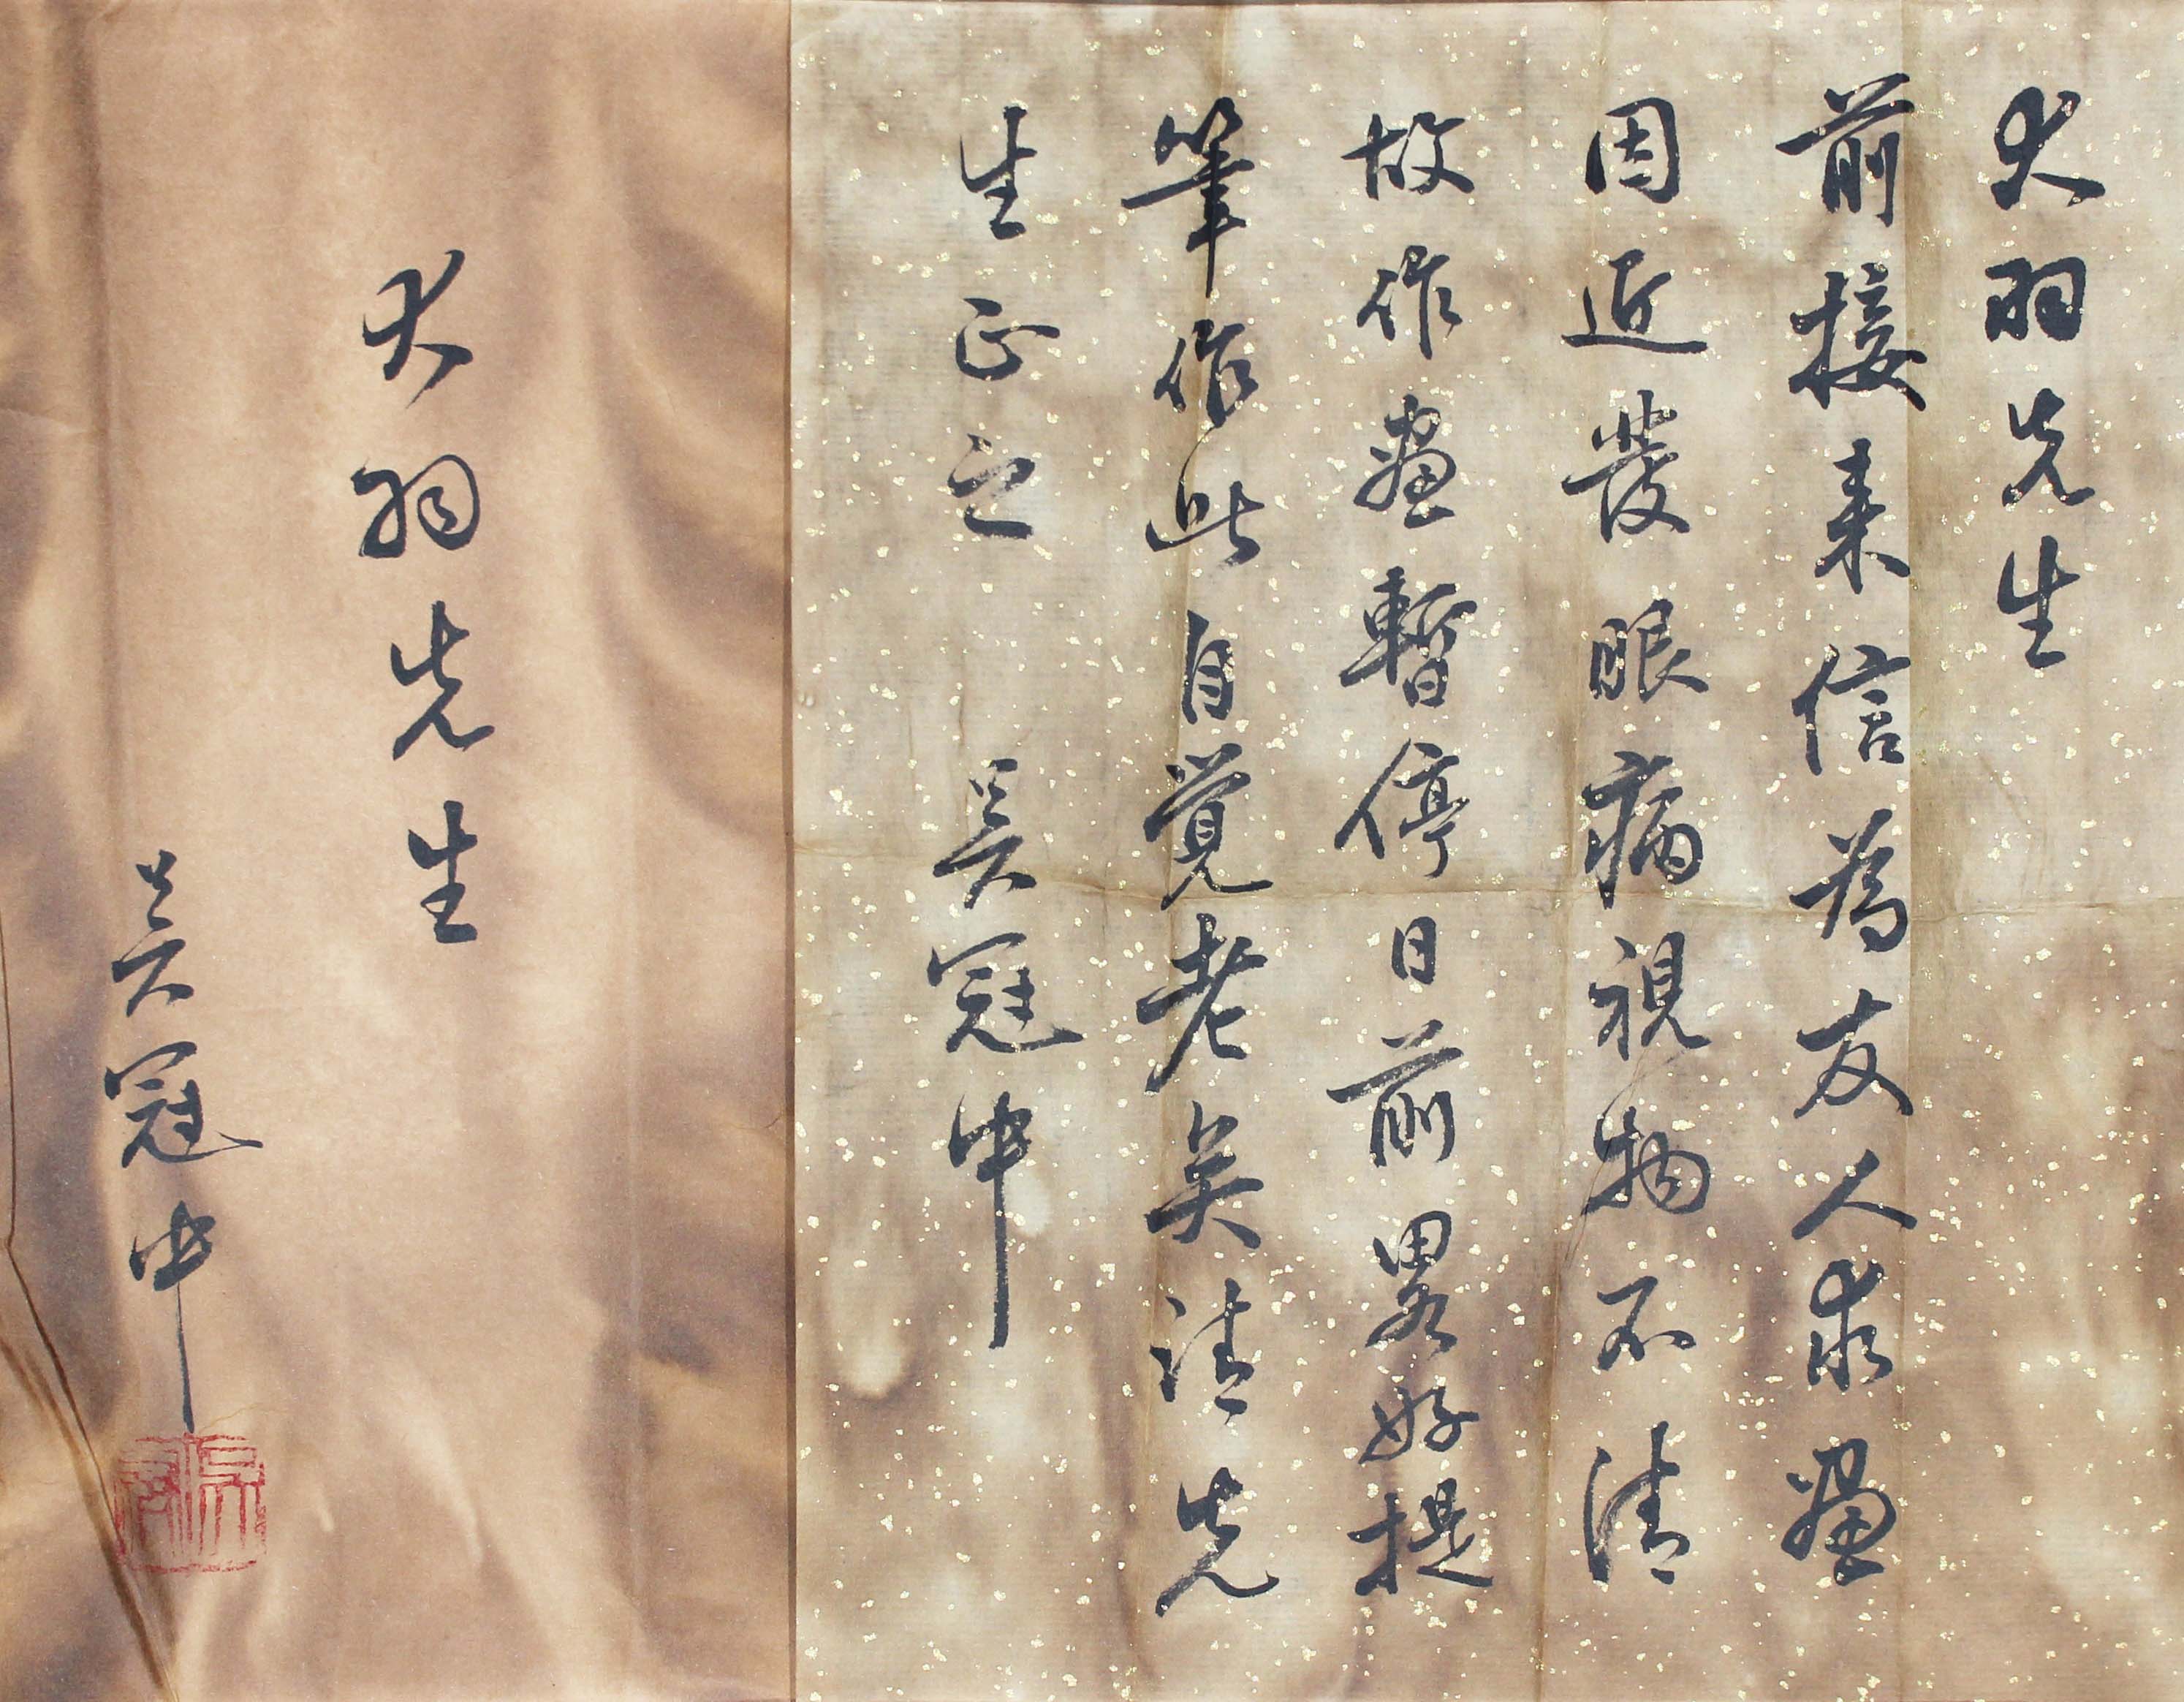 大羽先生
前接来信為友人求畫
因近發眼病視物不清
故作畫暫停日前畧好提
筆作此自覚老矣請先
生正之 吴冠中
大羽先生
吴冠中